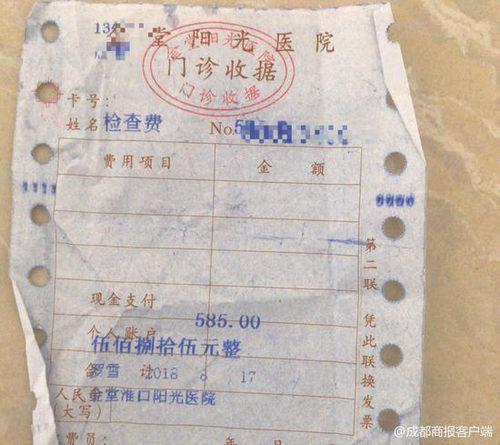 13
堂阳光医院
金堂阳光医院
门诊收据
门诊收据
卡号:
姓名 检查费 No.5
费用项目 金额
现金支付
585.00
个人账户
伍佰捌拾伍元整
合计
罗雪 2018 8 17
人民 金堂淮口阳光医院
(大写)
费员: 年 月
第二联 凭此联换发票
@成都商报客户端